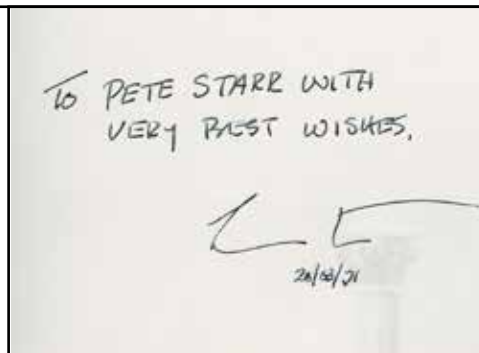 To PETE STARR WITH
VERY BEST WISHES,